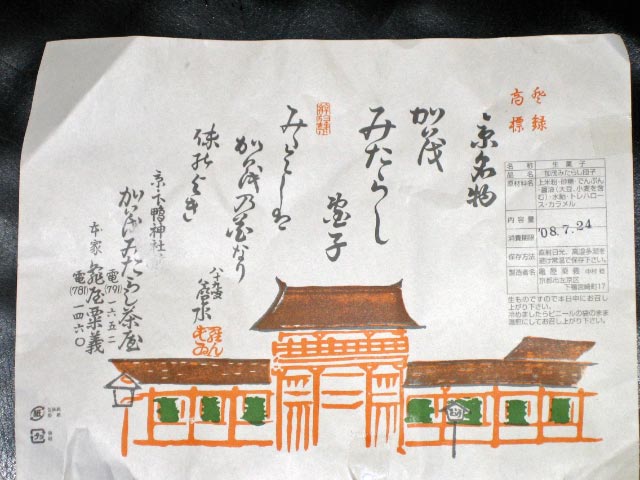 登録
商標
京名物
加茂
みたらし
団子
みたらしは
加茂乃花なり
味わよき
八十九叟
京・下鴨神社
加茂みたらし茶屋
電(791)一六五二
本家 亀屋粟義
電(781)一四六〇
名称 生菓子
品名 加茂みたらし団子
原材料名 上米粉・砂糖・でんぷん
・醤油(大豆、小麦を含
む)・水飴・トレハロー
ス・カラメル
内容量
消費期限 '08.7.24
保存方法 直射日光、高温多湿を
避け常温で保存下さい。
製造者名 亀屋粟義 中村 稔
京都市左京区
下鴨宮崎町17
生ものですので本日中にお召し
上がり下さい。
冷めましたらビニールの袋のまま
湯煎にしてお召し上がり下さい。
紙
プラ